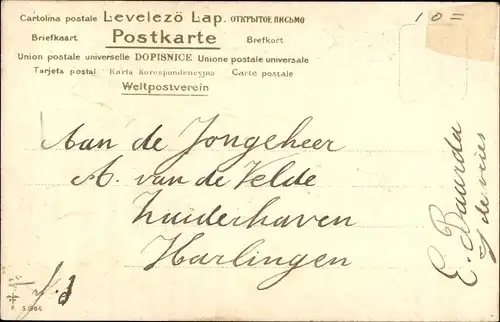 Cartolina postale Levelező Lap. ОТКРЫТОЕ ПИСЬМО
Briefkaart Postkarte Brefkort
Union postale universelle DOPISNICE Unione postale universale
Tarjeta postal Karta Korespondencyjna Carte postale
Weltpostverein
10=
Aan de Jongeheer
A. van de Velde
Zuiderhaven
Harlingen
E. Baurda